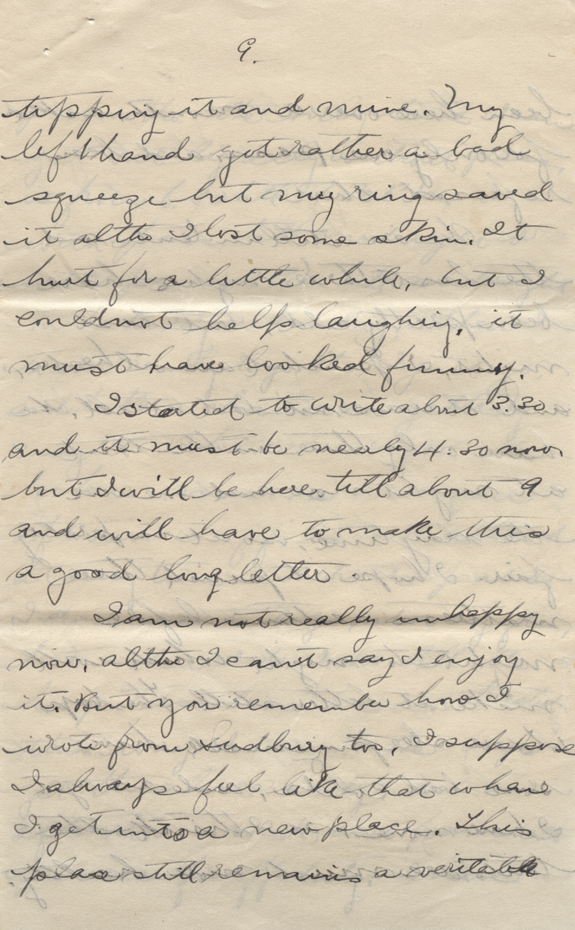 9.
tipping it and mine. My
left hand got rather a bad
squeeze but my ring saved
it altho I lost some skin. It
hurt for a little while, but I
could not help laughing, it
must have looked funny.
I started to write about 3.30
and it must be nearly 4.30 now
but I will be here till about 9
and will have to make this
a good long letter.
I am not really unhappy
now, altho I can't say I enjoy
it. But you remember how I
wrote from Sudbury too, I suppose
I always feel like that whare
I get into a new place. This
place still remains a veritable